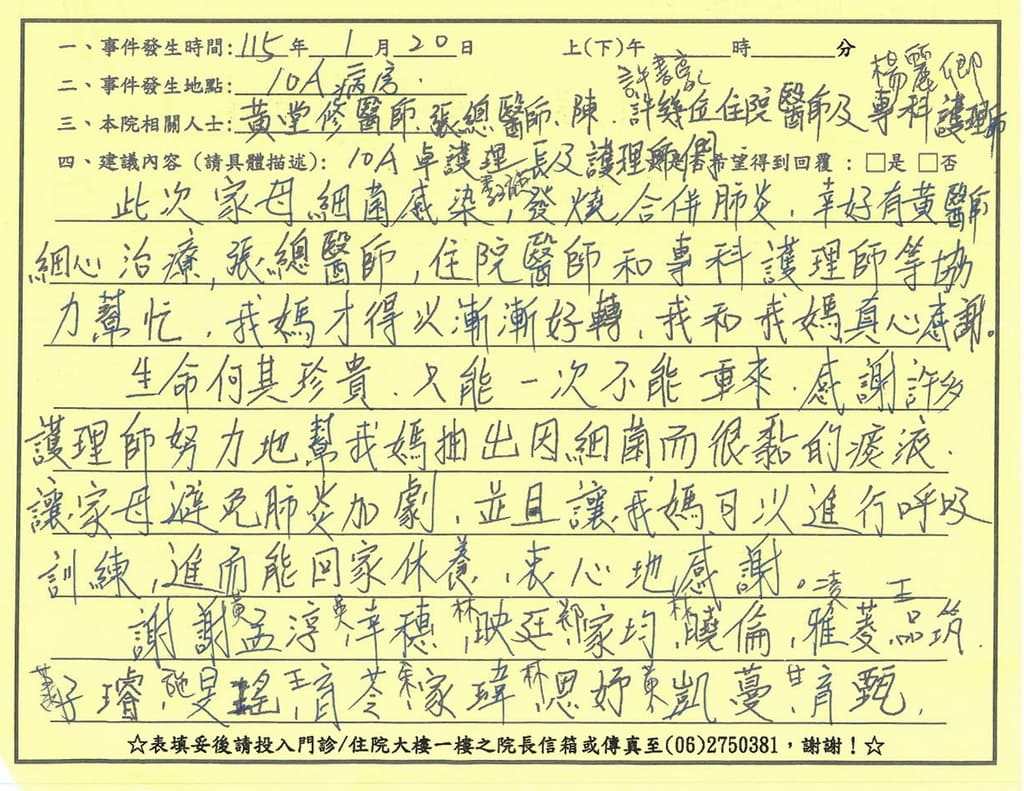 一、事件發生時間:115年1月20日 上(下)午 時 分
二、事件發生地點:10A病房.
許書 楊麗卿
三、本院相關人士:黃堂修醫師.張總醫師.陳.許幾位住院醫師及專科護理師
四、建議內容(請具體描述): 10A卓護理長及護理師們 是否希望得到回覆:□是 □否
此次家母細菌感染,發燒合併肺炎,幸好有黃醫師
細心治療,張總醫師,住院醫師和專科護理師等協
力幫忙,我媽才得以漸漸好轉,我和我媽真心感謝。
生命何其珍貴.只能一次不能重來.感謝許多
護理師努力地幫我媽抽出因細菌而很黏的痰液.
讓家母避免肺炎加劇,並且讓我媽可以進行呼吸
訓練,進而能回家休養,衷心地感謝。
謝謝黃孟淳 幸穗 林映廷 鄭家均 林曉倫,凌雅菱 王品筑.
子璿 施旻瑤 王育苓 家瑋 林恩妤 黃凱蔓 甘育甄,
☆表填妥後請投入門診/住院大樓一樓之院長信箱或傳真至(06)2750381,謝謝!☆